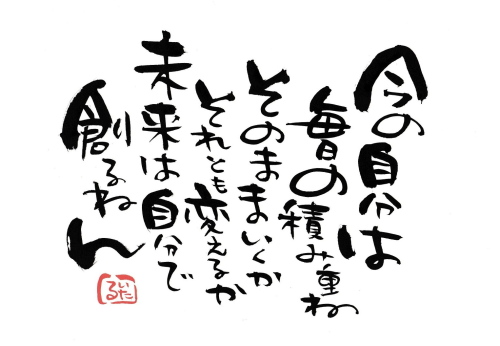 今の自分は
毎日の積み重ね
そのままいくか
それとも変えるか
未来は自分で
創るねん